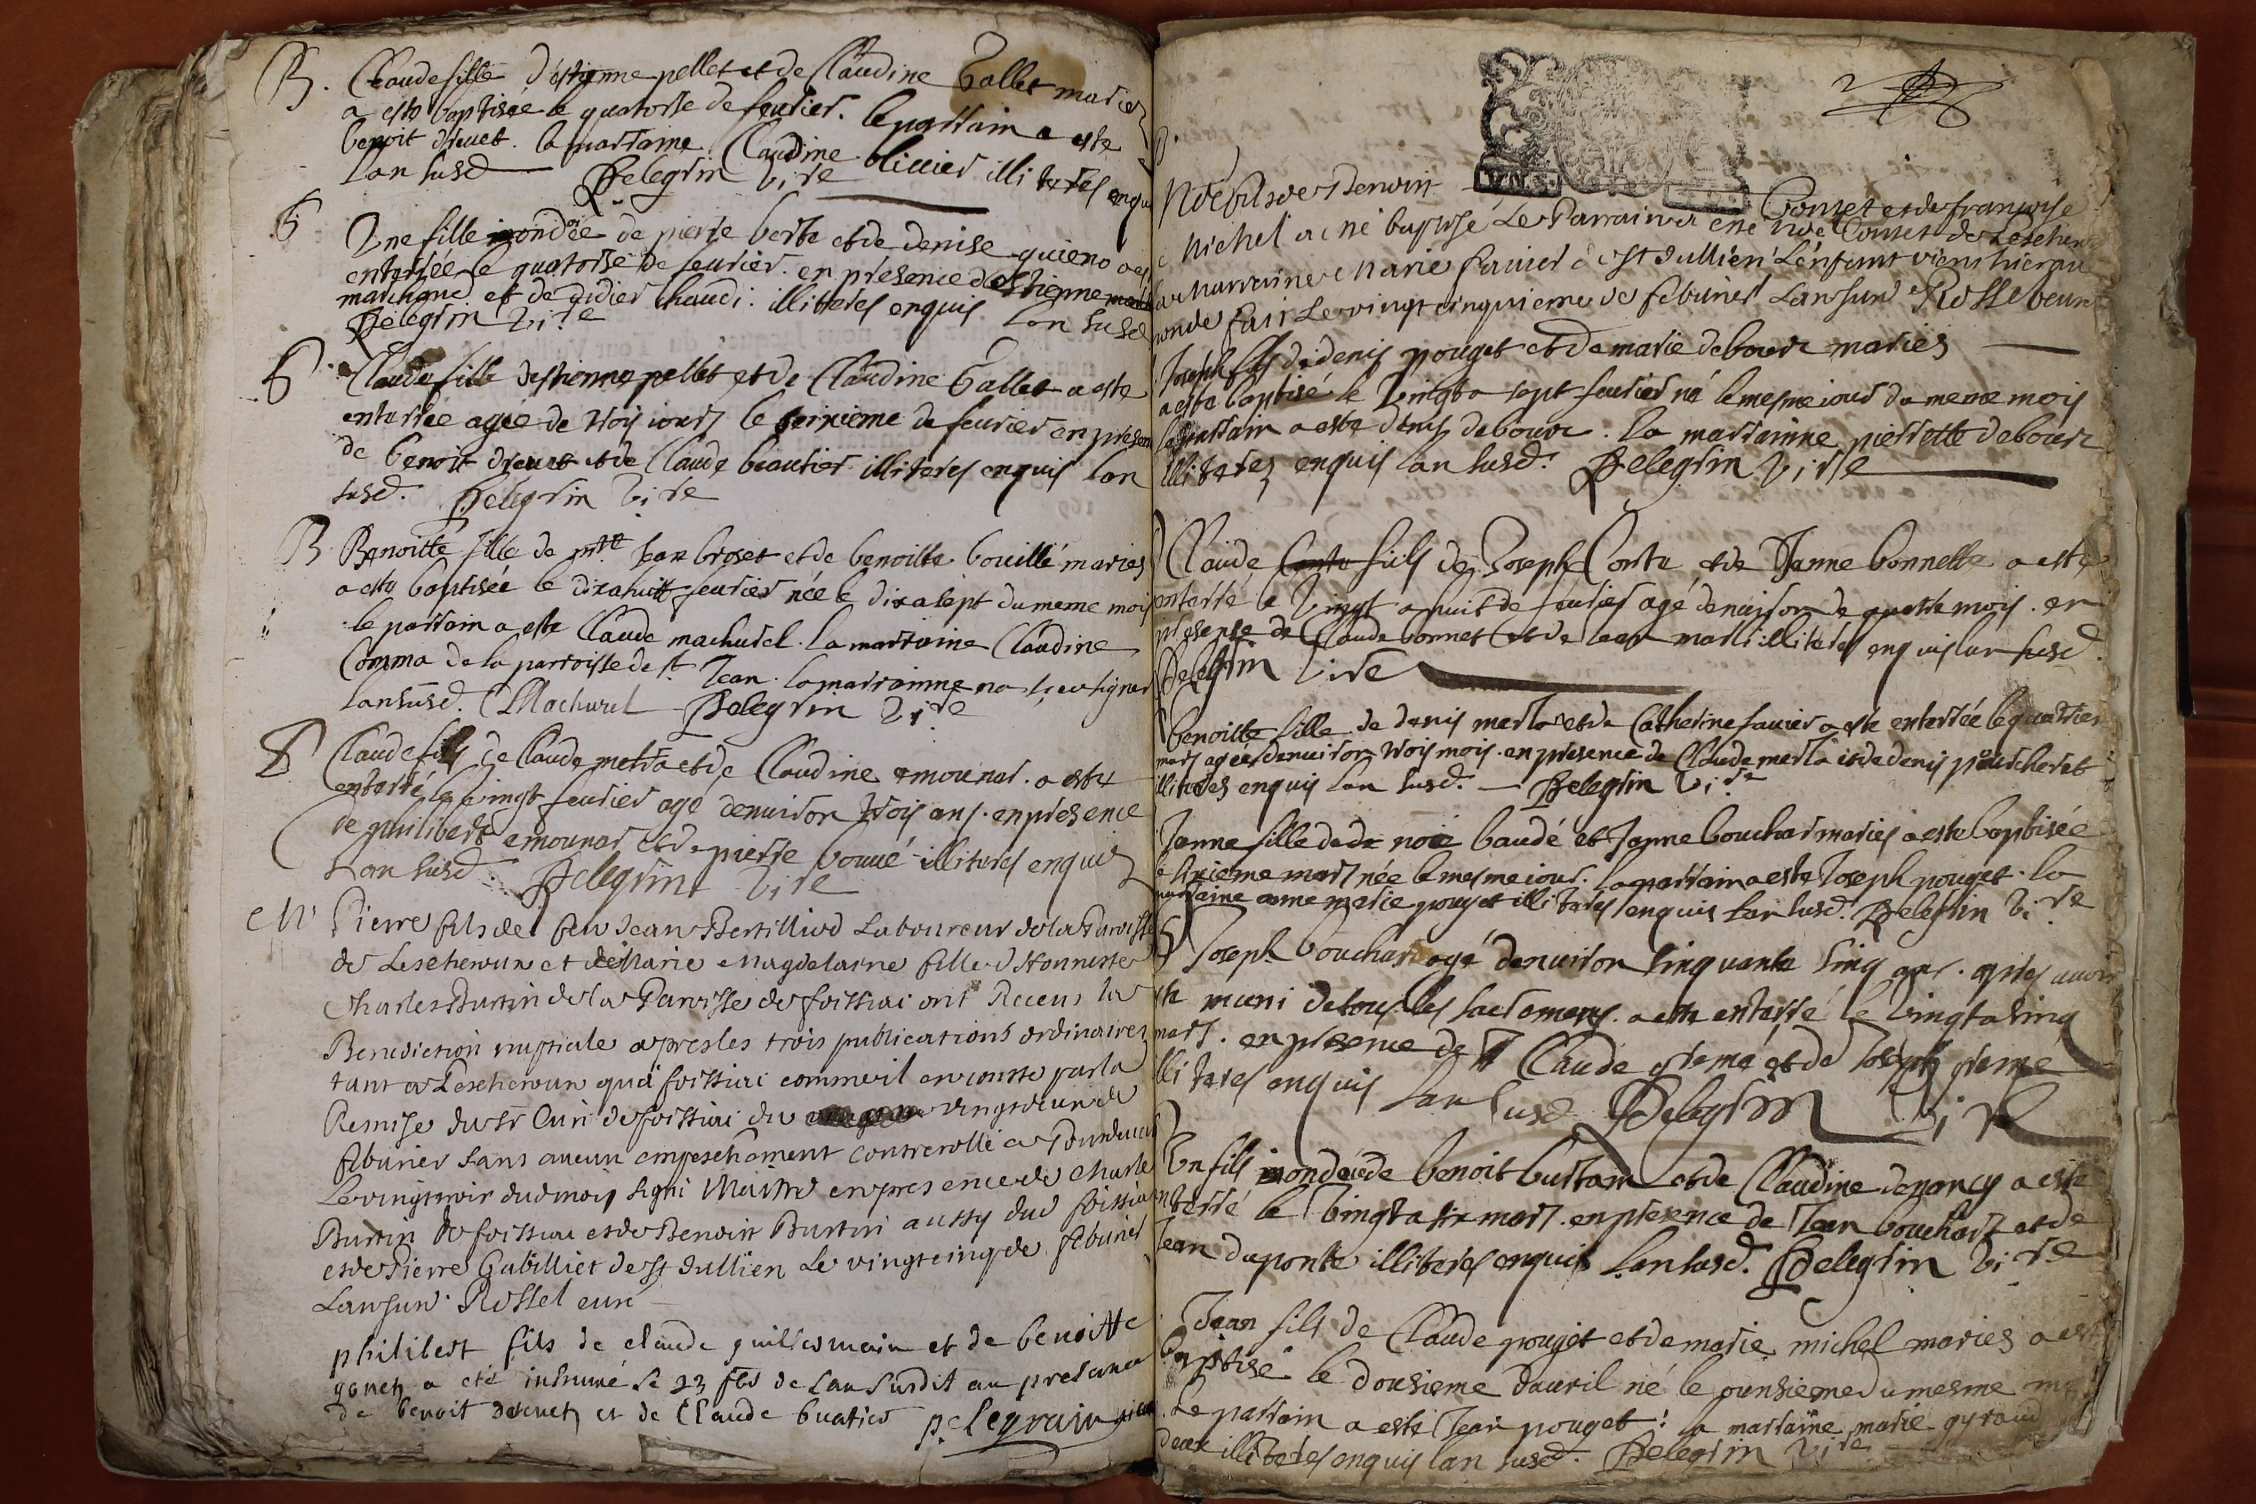 B. Claude fille d'estienne pellet et de Claudine Gallet mariez
a esté baptisée le quatorse de feurier. le parrain a este
benoit driuet. la marraine Claudine oliuier illiteres enquis
lan susd Pelegrin Vire
S Une fille ondée de pierre berte et de denise quieno a
enterrée le quatorse de feurier. en presence destienne
marchand et de didier chaudi. illiteres enquis lan susd
Pelegrin Vire
S Claude fille destienne pellet et de Claudine Gallet a este
enterrée agée de trois iours le seixieme de feurier en presen
de benoit driuet et de Claude beautier illiteres enquis lan
susd. Pelegrin Vire
B Benoitte fille de mtre Jean broset et de benoitte bouillé maries
a este baptisée le dixahuit feurier née le dixasept du meme mois
le parrain a este Claude machurel. la marraine Claudine
Comma de la parroisse de st Jean. la marrainne na sceu signer
lansusd. CMachurel Pelegrin Vire
S Claude fils de Claude metra et de Claudine emounar. a este
enterré le vingt feurier agé denuiron trois ans. en presence
de philibert emounar et de pierre bouué illiteres enquis
Lan susd. Pelegrin Vire
M Pierre fils de feu Jean Bertilliod Laboureur de la Paroisse
de Lescheroux et de Marie Magdelaine fille d'Honneste
Charles Burtin de la Paroisse de foissiat ont Receus la
Benediction nuptiale apres les trois publications ordinaires
tant a Lescheroux qua foissiat comme il en conste par la
Remise du sr Curé de foissiat du vingtdeux de
feburier sans aucun empeschement controrollé a
Le vingttrois dud mois signé Maitre en presence de Charle
Burtin de foissiat et de Benoist Burtin aussy dud foissiat
et de Pierre Gabilliet de St Jullien Le vingtcinq de feburier
Lansusd. Rossel curé
philibert fils de claude guillermain et de benoitte
gonet a eté inhumé le 23 feb de Lan susdit en presance
de benoit et de Claude buatier pelegrain vire
2
de Benoist Contet et de françoise
Michel a ené baptisé Le Parrain a ené Contet de Lescheroux
La Marraine Marie fauier de St Jullien L'enfant
onde fait Le vingtcinquieme de feburier Lansusd Rossel
Joseph fils de denis pouget et de marie debourc maries
a este baptisé le Vingta sept feurier né le mesme iour du meme mois
le parrain a este denis debourc. la marrainne pierrette debourc
illiteres enquis lan susd. Pelegrin Vire
Claude fils de Joseph Conte et de Janne bonnette a este
enterré le Vingt a huit de feurier agé denuiron de quatre mois. en
presense de Claude bonnet et de Jean marli illiteres enquis lan susd.
Pelegrin Vire
benoitte fille de denis merla et de Catherine fauier a este enterrée le quatrier
mars agée denuiron trois mois. en presence de Claude merla et de denis pourcheret
illiteres enquis lan susd. Pelegrin Vire
Janne fille de noié baudé et Janne bouchar maries a este baptisée
le sixieme mars née le mesme iour. le parrain a este Joseph pouget. la
marraine anne marie pouget illiteres enquis lan susd. Pelegrin Vire
S Joseph bouchar agé denuiron sinquante sing ans. apres auoir
muni de tous les sacremens. a este enterré le vingta sinq
mars. en presence de Claude greme et de Joseph greme
illiteres enquis lan susd Pelegrin Vire
Un fils ondé de benoit burtain et de Claudine denancy a este
enterré le Vingta six mars. en presence de Jean bouchar et de
Jean duponte illiteres enquis lan susd. Pelegrin Vire
Jean fils de Claude pouget et de marie michel maries a est
baptisé le dousieme dauril né le ounsieme du mesme
Le parrain a este Jean pouget: la marraine marie gyraud
illiteres enquis lan susd. Pelegrin Vire